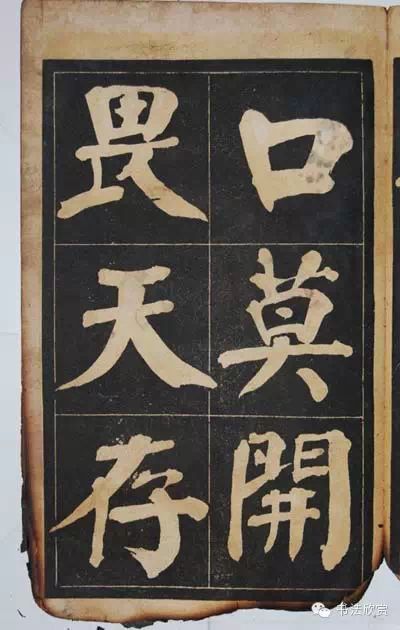 口莫開
畏天存
书法欣赏